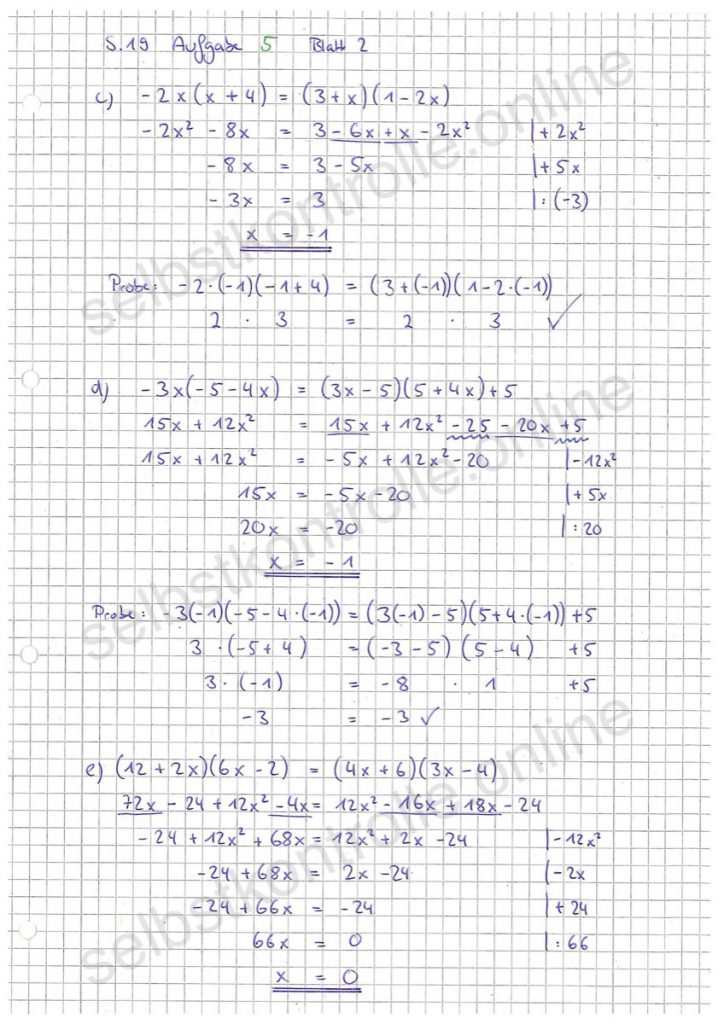 S.19 Aufgabe 5 Blatt 2
c) -2x(x+4) = (3+x)(1-2x)
-2x² - 8x = 3 - 6x + x - 2x² | + 2x²
-8x = 3 - 5x | + 5x
-3x = 3 | : (-3)
x = -1
Probe: -2·(-1)(-1+4) = (3+(-1))(1-2·(-1))
2 · 3 = 2 · 3 ✓
d) -3x(-5-4x) = (3x-5)(5+4x)+5
15x + 12x² = 15x + 12x² - 25 - 20x + 5
15x + 12x² = -5x + 12x² - 20 | - 12x²
15x = -5x - 20 | + 5x
20x = -20 | : 20
x = -1
Probe: -3(-1)(-5-4·(-1)) = (3(-1)-5)(5+4·(-1)) + 5
3 · (-5+4) = (-3-5) (5-4) + 5
3 · (-1) = -8 · 1 + 5
-3 = -3 ✓
e) (12+2x)(6x-2) = (4x+6)(3x-4)
72x - 24 + 12x² - 4x = 12x² - 16x + 18x - 24
-24 + 12x² + 68x = 12x² + 2x - 24 | - 12x²
-24 + 68x = 2x - 24 | - 2x
-24 + 66x = -24 | + 24
66x = 0 | : 66
x = 0
selbstkontrolle.online
selbstkontrolle.online
selbstkontrolle.online